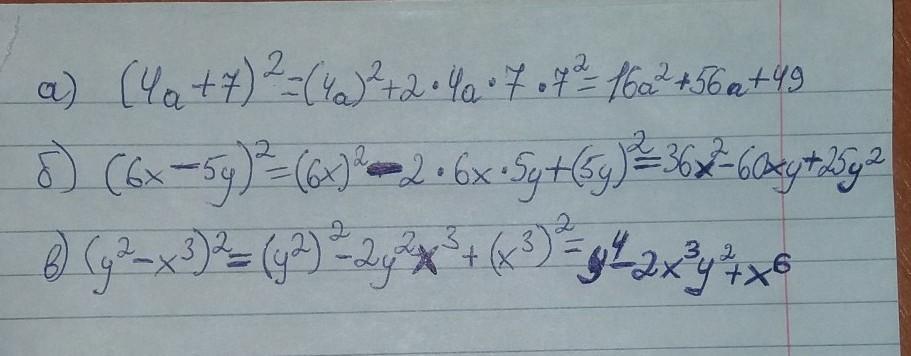 а) (4a+7)²=(4a)²+2·4a·7·7²=16a²+56a+49
б) (6x-5y)²=(6x)²-2·6x·5y+(5y)²=36x²-60xy+25y²
в) (y²-x³)²=(y²)²-2y²x³+(x³)²=y⁴-2x³y²+x⁶